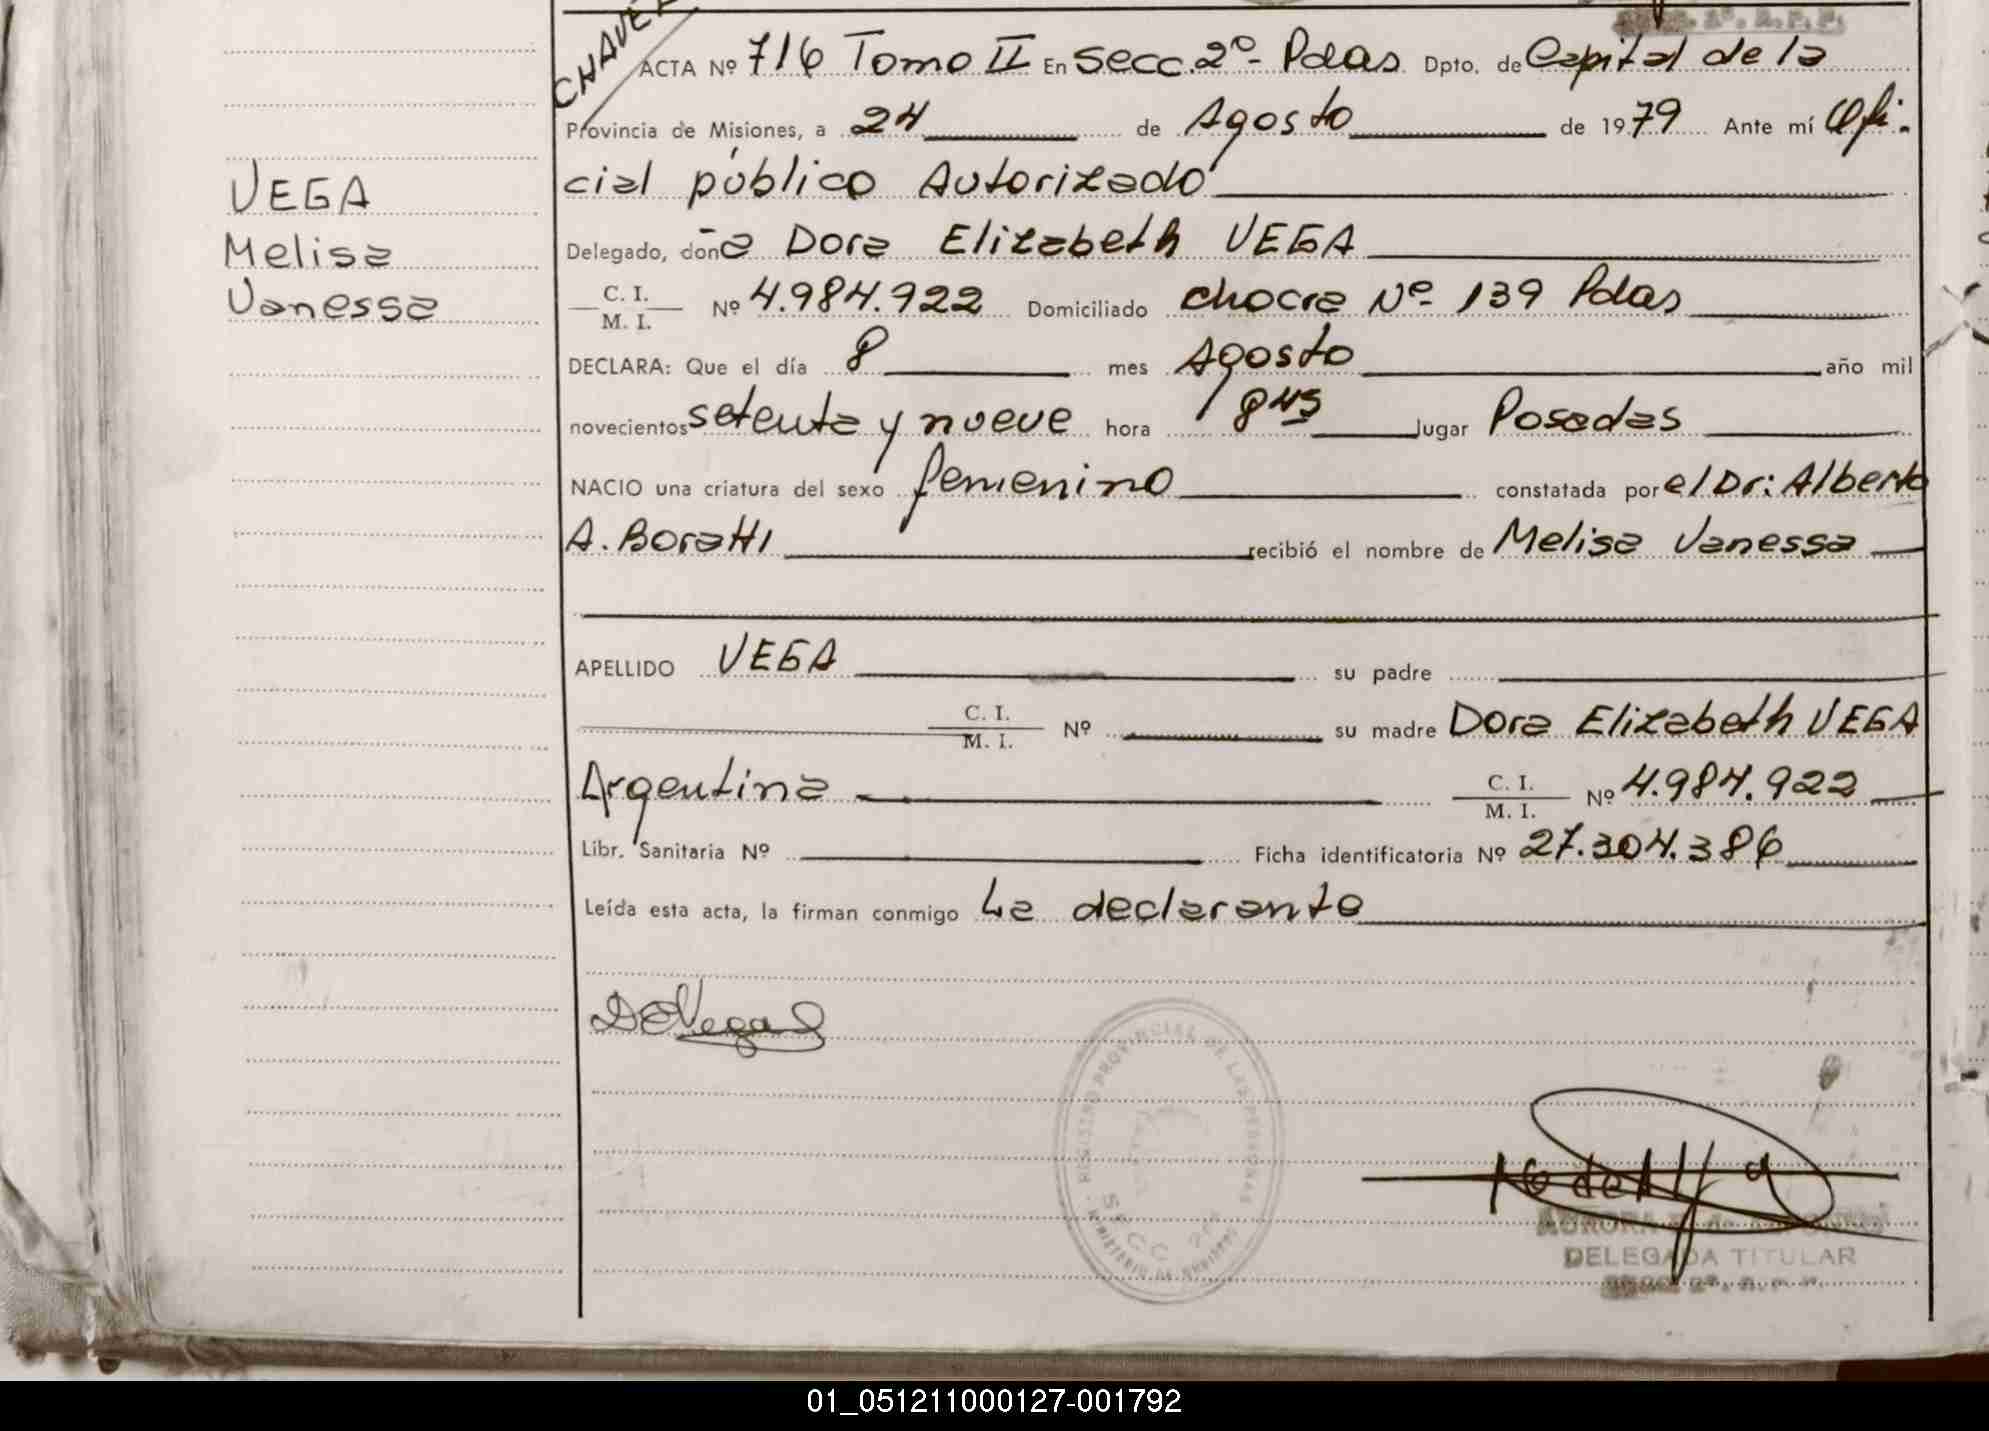 CHAVE
ACTA Nº 716 Tomo II En Secc. 2º- Pdas Dpto. de Capital de la
Provincia de Misiones, a 24 de Agosto de 1979 Ante mí Ofi-
cial público Autorizado
Delegado, doña Dora Elizabeth VEGA
C. I.
M. I. Nº 4.984.922 Domiciliado chacra Nº 139 Pdas
DECLARA: Que el día 8 mes Agosto año mil
novecientos setenta y nueve hora 8 hs lugar Posadas
NACIO una criatura del sexo femenino constatada por el Dr: Alberto
A. Boratti recibió el nombre de Melisa Vanessa
APELLIDO VEGA su padre
C. I.
M. I. Nº su madre Dora Elizabeth VEGA
Argentina C. I.
M. I. Nº 4.984.922
Libr. Sanitaria Nº Ficha identificatoria Nº 27.304.386
Leída esta acta, la firman conmigo La declarante
VEGA
Melisa
Vanessa
DEVega
REGISTRO PROVINCIAL DE LAS PERSONAS
SECC
DELEGADA TITULAR
01_051211000127-001792